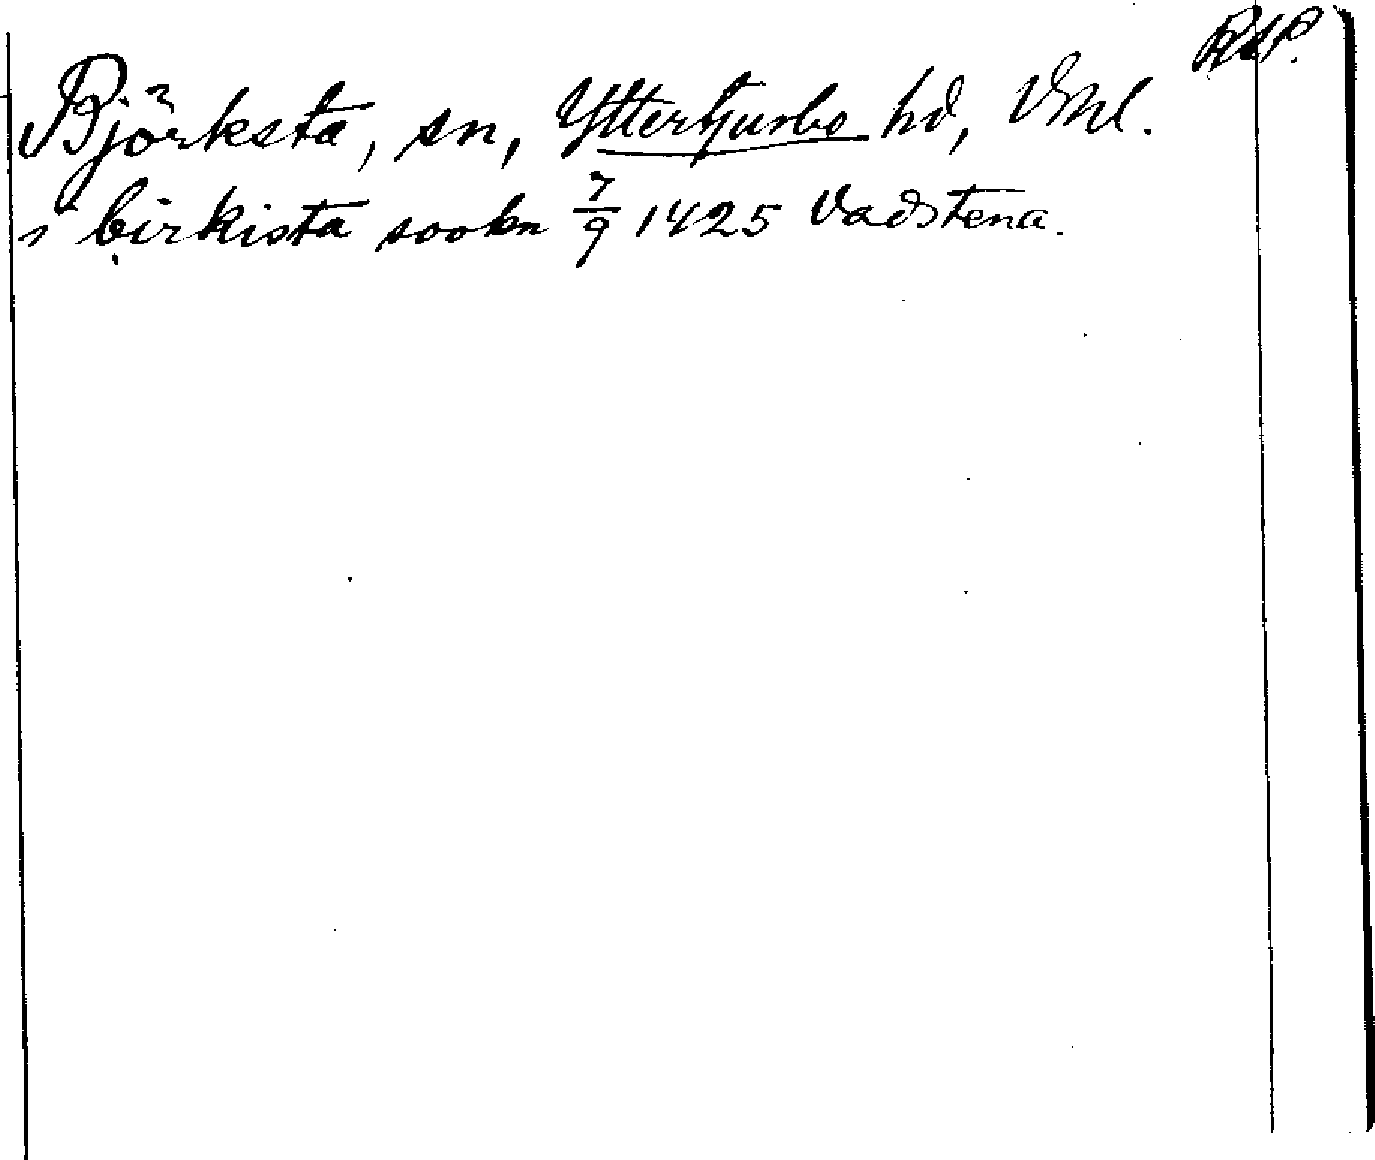 RAP.
Björksta, sn, Yttertjurbo hd, Vml.
i birkista sookn 7/9 1425 Vadstena.